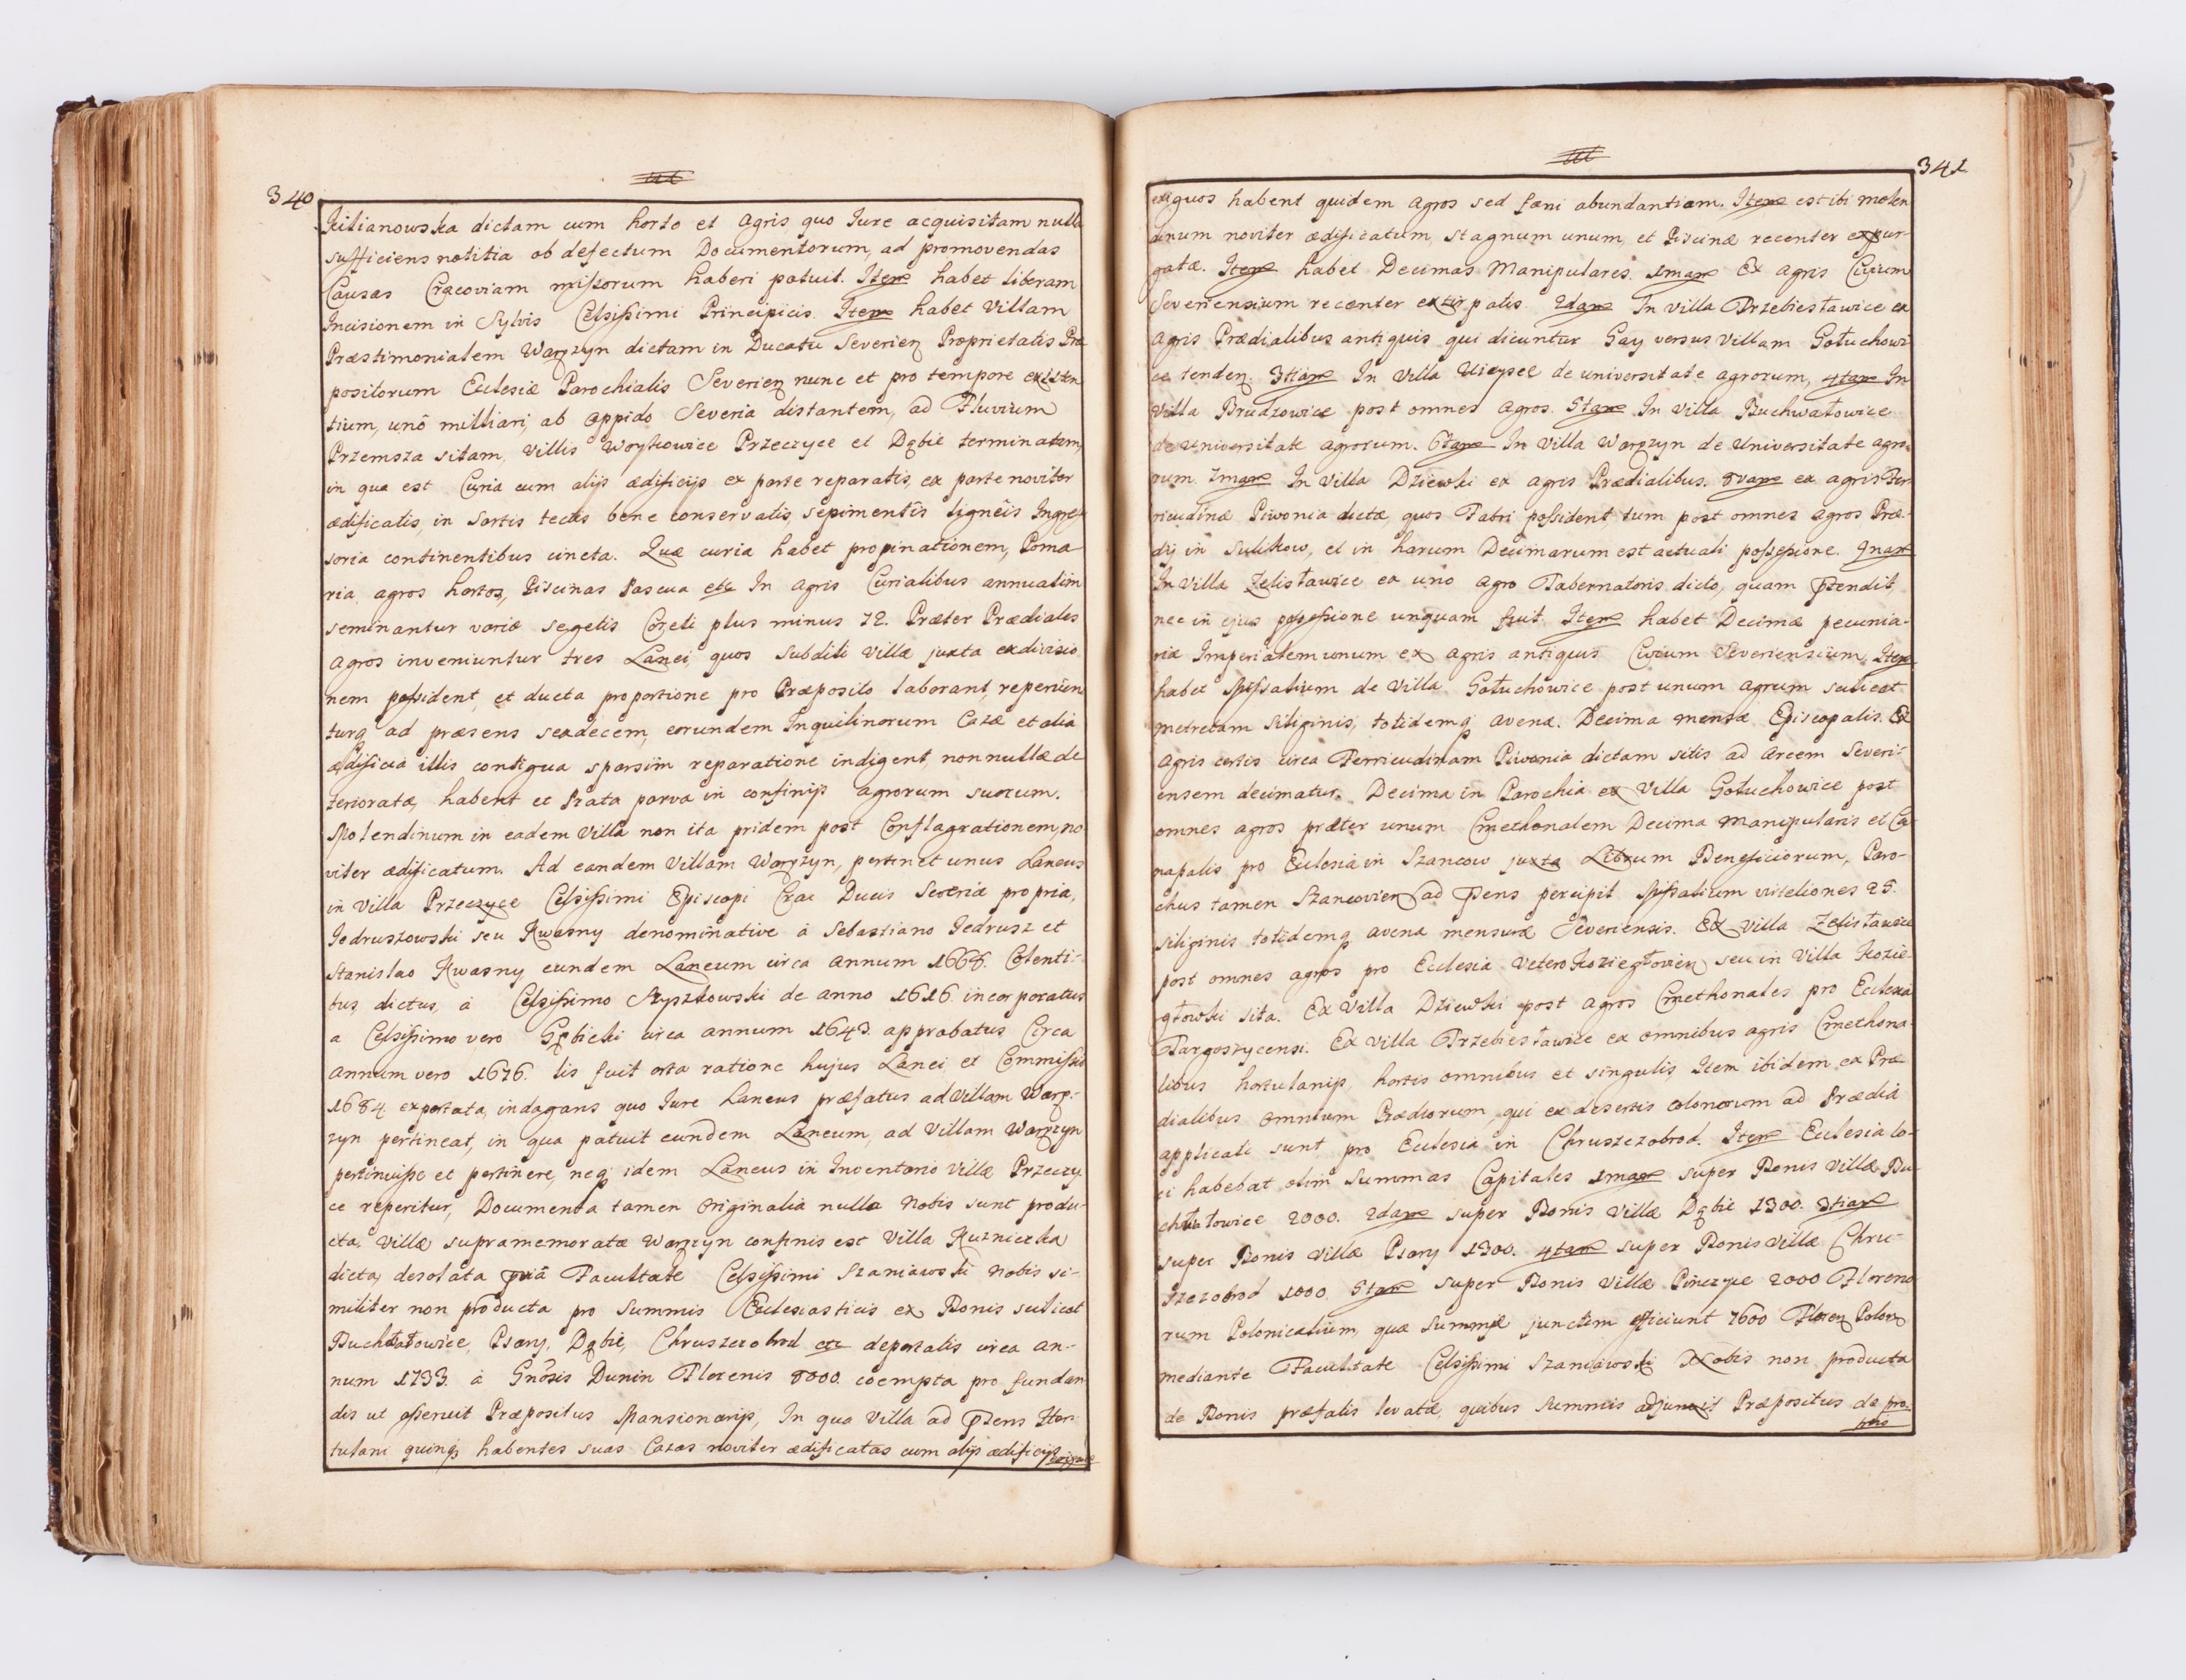 340
Kilianowska dictam cum horto et agris, quo Jure acquisitam nulla
sufficiens notitia ob defectum Documentorum, ad promovendas
Causas Cracoviam missorum haberi potuit. Item habet liberam
Incisionem in Sylvis Celsissimi Principicis. Item habet Villam
Præstimonialem Warpzyn dictam in Ducatu Severien Proprietatis Præ
positorum Ecclesiæ Parochialis Severien nunc et pro tempore existen
tium, unô milliari, ab oppido Severia distantem, ad Fluvium
Przemsza sitam, Villis Woykowice Przeczyce et Dąbie terminatam,
in qua est Curia cum alijs ædificijs ex parte reparatis, ex parte noviter
ædificatis, in sartis tectis bene conservatis, sepimentis ligneis Ingres
soria continentibus cincta. Quæ curia habet propinationem, Poma
ria, agros hortos, Piscinas Pascua etc In agris Curialibus annuatim
seminantur variæ segetis Coreti plus minus 72. Præter Prædiales
agros inveniuntur tres Lanei, quos subditi Villæ juxta exdivisio
nem possident, et ducta proportione pro Præposito laborant, reperiun
turq ad præsens sexdecem, eorundem Inquilinorum Cazæ et alia
ædificia illis contigua sparsim reparatione indigent, nonnullæ de
terioratæ, habent et Prata parva in confinijs agrorum suorum.
Molendinum in eadem Villa non ita pridem post Conflagrationem, no
viter ædificatum. Ad eandem Villam Warpzyn, pertinet unus Laneus
in Villa Przeczyce Celsissimi Episcopi Crac Ducis Severiæ propria,
Jedruszowski seu Kwasny denominative à Sebastiano Jedrusz et
Stanislao Kwasny eundem Laneum circa annum 1668. Colenti-
bus, dictus, à Celsissimo Szyszkowski de anno 1616. incorporatus
a Celsissimo vero Gębicki circa annum 1643. approbatus Circa
annum vero 1676. lis fuit orta ratione hujus Lanei, et Commissio
1684 exportata, indagans quo Jure Laneus præfatus ad Villam Warp-
zyn pertineat, in qua patuit eundem Laneum, ad Villam Warpzyn
pertinuisse et pertinere, neq idem Laneus in Inventario Villæ Przeczy
ce reperitur, Documenta tamen originalia nulla Nobis sunt produ-
cta. Villæ supramemoratæ Warpzyn confinis est Villa Kuzniczka
dicta, desolata prævia Facultate Celsissimi Szaniawski Nobis si-
militer non producta pro Summis Ecclesiasticis ex Bonis scilicet
Buchwałowice, Psary, Dąbie, Chruszczobrod etc deportatis circa an-
num 1733. à Gnosis Dunin Florenis 8000. coempta pro fundan
dis ut asseruit Præpositus Mansionarijs, In qua Villa ad præsens Hor
tulani quinq habentes suas Cazas noviter ædificatas cum alijs ædificijs
exiguos
341
exiguos habent quidem agros sed fæni abundantiam. Item est ibi molen
dinum noviter ædificatum, stagnum unum, et Piscinæ recenter expur-
gatæ. Item habet Decimas Manipulares. 1mam Ex agris Civium
Severiensium recenter extirpatis. 2dam In Villa Trzebiesławice ex
agris Prædialibus antiquis qui dicuntur Gay versus Villam Gołuchowi
ce tenden. 3tiam In Villa Uieysce de universitate agrorum, 4tam In
Villa Brudzowice post omnes agros. 5tam In Villa Buchwałowice
de universitate agrorum. 6tam In Villa Warpzyn de Universitate agro-
rum 7mam In Villa Dziewki ex agris Prædialibus. 8vam ex agris Fer
ricudinæ Piwonia dictæ, quos Fabri possident tum post omnes agros Præ-
dij in Sulikow, et in harum Decimarum est actuali possessione. 9nam
In Villa Zelisławice ex uno agro Tabernatoris dicto, quam prætendit,
nec in ejus possessione unquam fuit. Item habet Decimæ pecunia-
riæ Imperialem unum ex agris antiquis Civium Severiensium. Item
habet Missalium de Villa Gołuchowice post unum agrum scilicet
metretam siliginis, totidemq avenæ. Decima mensæ Episcopalis. Ex
agris certis circa Ferricudinam Piwonia dictam sitis ad arcem Severi-
ensem decimatur. Decima in Parochia ex Villa Gołuchowice post
omnes agros præter unum Cmethonalem Decima manipularis et Ca
napalis pro Ecclesia in Szancow juxta Librum Beneficiorum, Paro-
chus tamen Szancovien ad præsens percipit Missalium viteliones 25.
siliginis totidemq avenæ mensuræ Severiensis. Ex Villa Zelisławice
post omnes agros pro Ecclesia Vetero Koziegłovien seu in Villa Kozie-
głowki sita. Ex Villa Dziewki post agros Cmethonales pro Ecclesia
Targoszycensi. Ex Villa Trzebiesławice ex omnibus agris Cmethona-
libus hortulanijs, hortis omnibus et singulis, Item ibidem ex Præ
dialibus omnium Prædiorum, qui ex desertis colonorum ad Prædia
applicati sunt pro Ecclesia in Chruszczobrod. Item Ecclesia lo-
ci habebat olim Summas Capitales 1mam super Bonis Villæ Bu-
chwałowice 2000. 2dam super Bonis Villæ Dąbie 1300. 3tiam
super Bonis Villæ Psary 1300. 4tam super Bonis Villæ Chru-
szczobrod 1000. 5tam super Bonis Villæ Pinczyce 2000 Floreno
rum Polonicalium, quæ Summæ junctim efficiunt 7600 Floren Polon
mediante Facultate Celsissimi Szaniawski Nobis non producta
de Bonis præfatis levatæ, quibus Summis adjunxit Præpositus de pro-
prijs